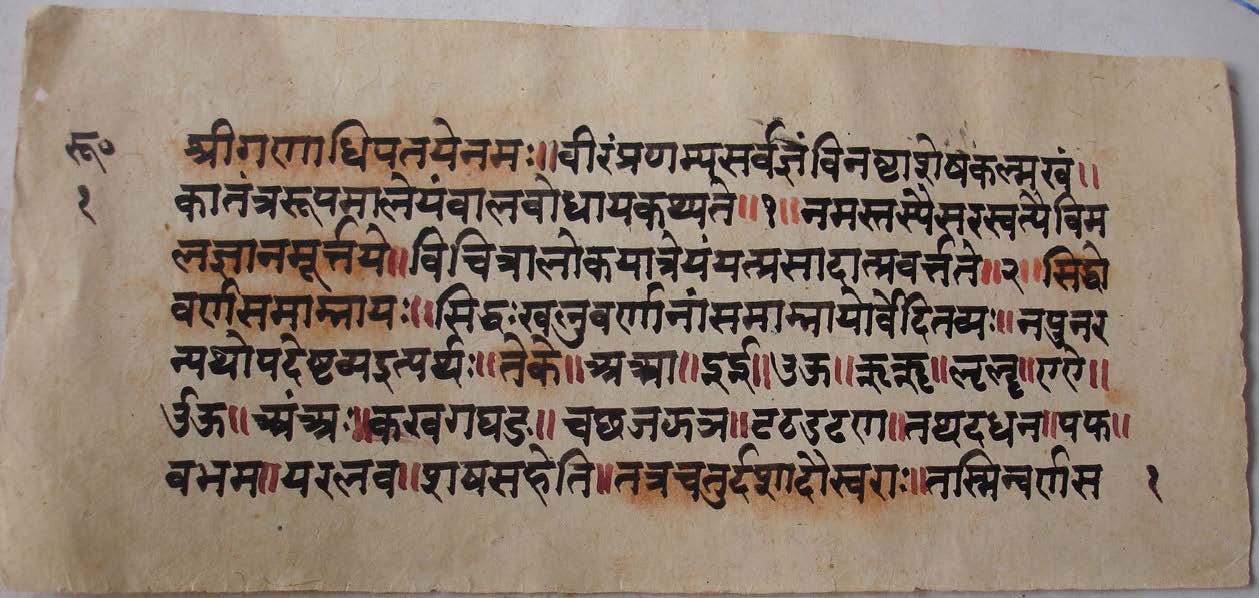 रू० श्रीगणाधिपतयेनमः॥वीरंप्रणम्यसर्वज्ञंविनष्टाशेषकल्मखं॥
१ कातंत्ररूपमालेयंवालवोधायकथ्यते॥१॥नमस्तस्यैसरस्वत्यैविम
लज्ञानमूर्त्तये॥विचित्रालोकयात्रेयंयत्प्रसादात्प्रवर्त्तते॥२॥सिद्धो
वर्णसमाम्नायः॥सिद्धःखलुवर्णानांसमाम्नायोर्वेदितव्यः॥नपुनर
न्यथोपदेष्टव्यइत्यर्थः॥तेके॥अआ॥इई॥उऊ॥ऋॠ॥ऌॡ॥एऐ॥
ओऔ॥अंअः॥कखगघङ॥चछजझञ॥टठडढण॥तथदधन॥पफ॥
वभम॥यरलव॥शषसहेति॥तत्रचतुर्दशादौस्वराः॥तस्मिन्वर्णस १